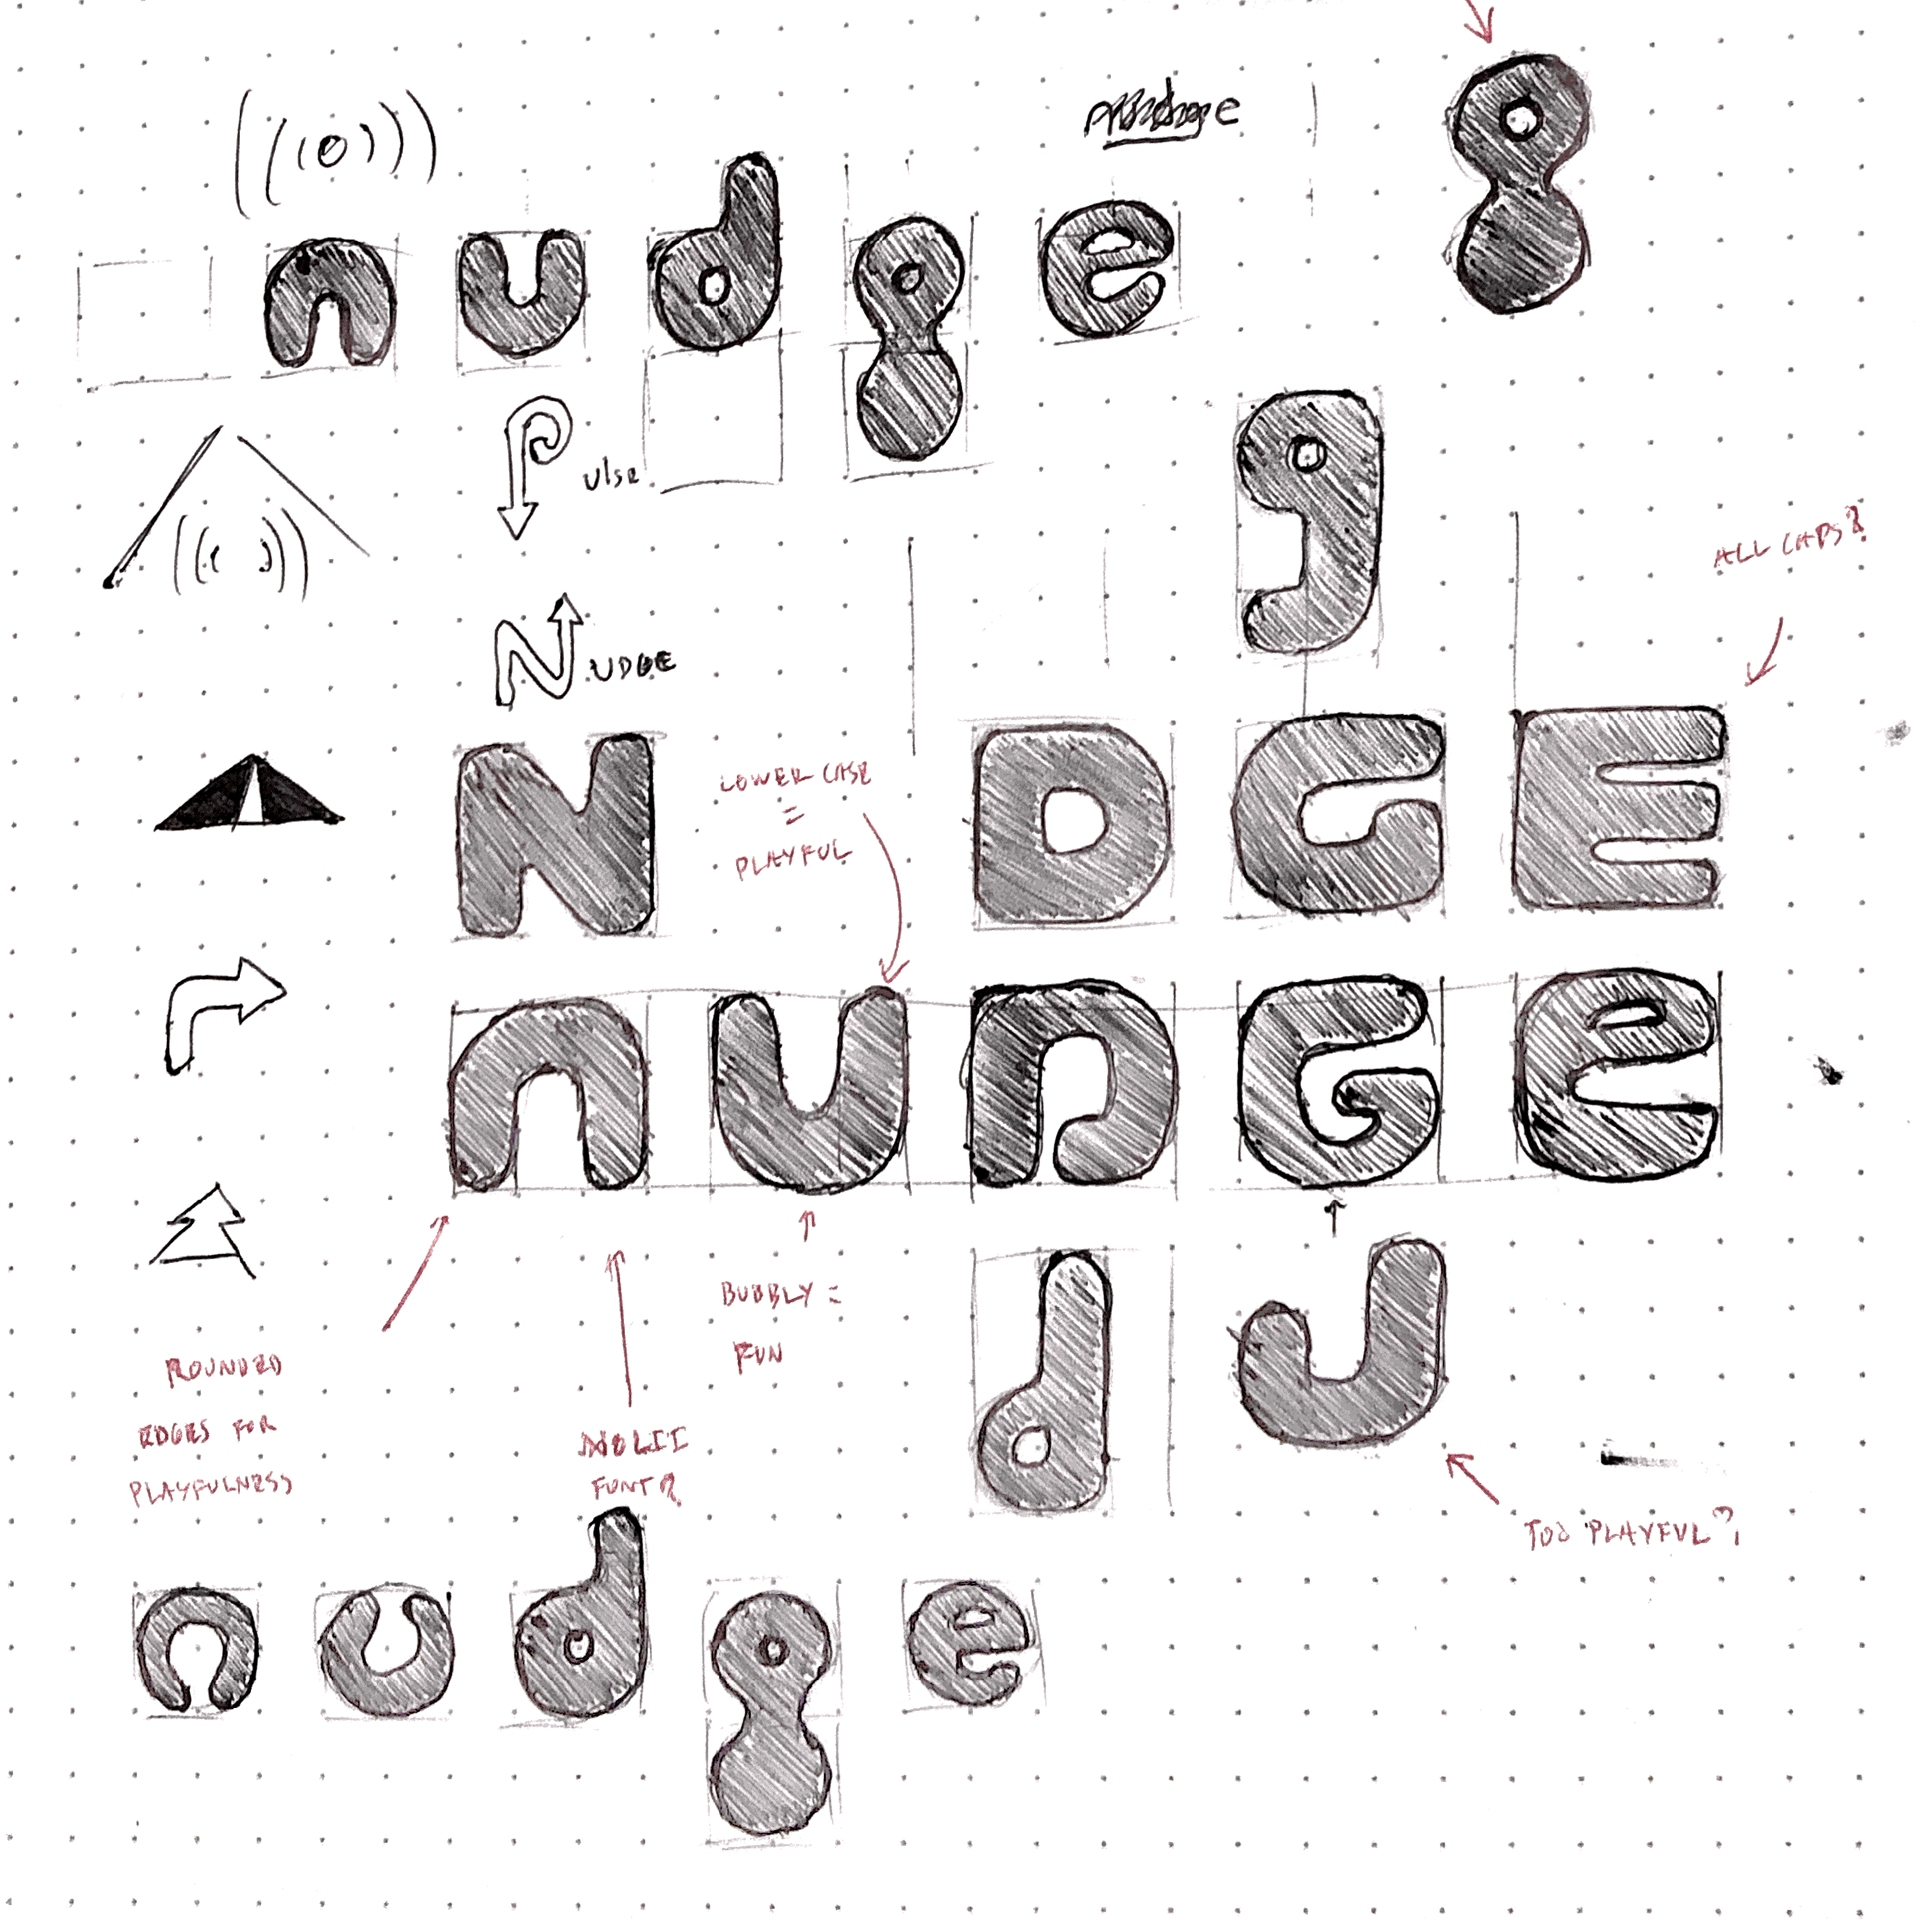 nudge
Pulse
ALL CAPS?
g
NUDGE
N DGE
LOWER CASE
=
PLAYFUL
nUDGe
BUBBLY =
FUN
d J
ROUNDED
EDGES FOR
PLAYFULNESS
FONT?
TOO "PLAYFUL"?
nudge